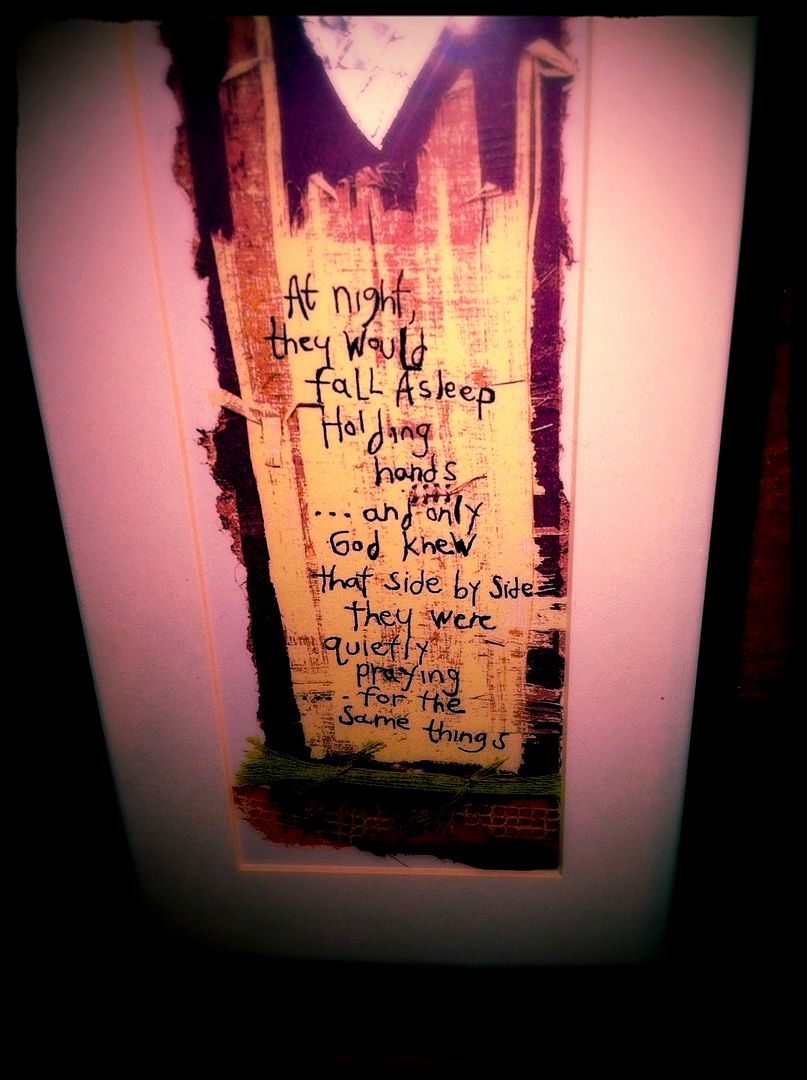 At night,
they would
fall Asleep
Holding
hands
...and only
God knew
that side by side
they were
quietly
praying
.... for the
same things